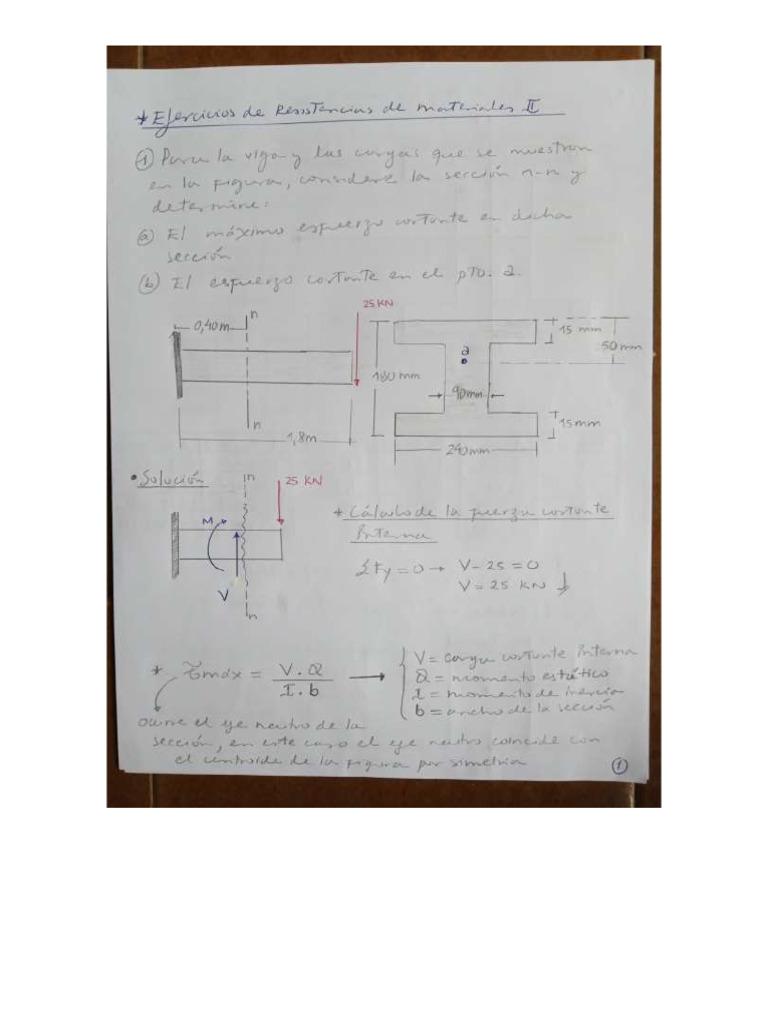 * Ejercicios de Resistencias de materiales II
① Para la viga y las cargas que se muestran
en la figura, considere la sección n-n y
determine:
ⓐ El máximo esfuerzo cortante en dicha
sección
ⓑ El esfuerzo cortante en el pto. a.
25 KN
n
0,40m
n
1,8m
180 mm
a
90mm
240mm
15 mm
50mm
15mm
• Solución
n
25 KN
M
V
n
* Cálculo de la fuerza cortante
Interna
ΣFy = 0 → V - 25 = 0
V = 25 KN ↓
* τmáx = V . Q / I . b →
V = carga cortante Interna
Q = momento estático
I = momento de inercia
b = ancho de la sección
ocurre el eje neutro de la
sección, en este caso el eje neutro coincide con
el centroide de la figura por simetría
①